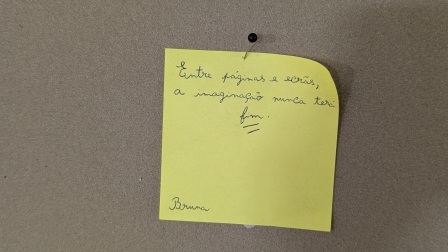 Entre páginas e ecrãs,
a imaginação nunca terá
fim.
Bruna